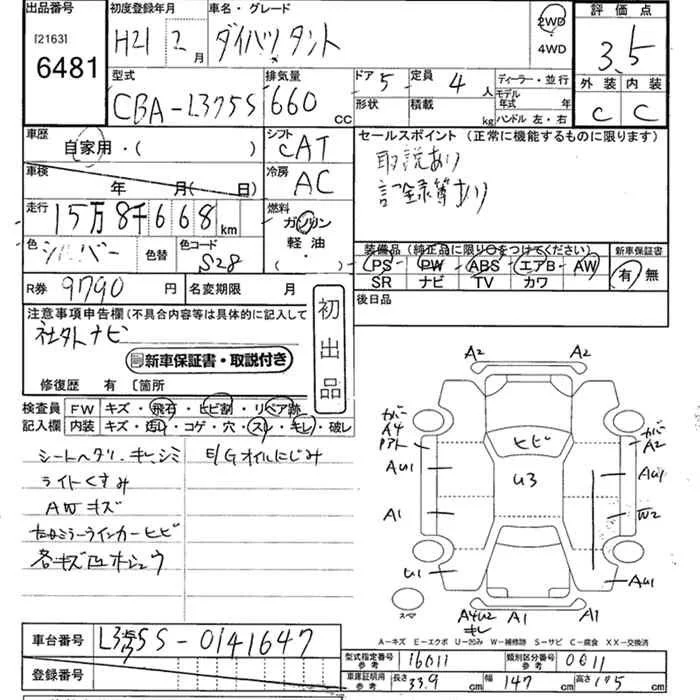 出品番号 初度登録年月 車名・グレード 2WD 評価点
[2163] 6481 H21 2月 ダイハツ タント 4WD 3.5
型式 排気量 ドア 5 定員 4人 ディーラー・並行 外装 内装
CBA-L375S 660cc 形状 積載 kg モデル年式 年 C C
ハンドル 左・右
車歴 シフト セールスポイント(正常に機能するものに限ります)
自家用・( ) CAT 取説あり
車検 年 月( 日) 冷房 AC 記録簿あり
走行 15万8千668km 燃料 ガソリン
軽油・
( )
色 シルバー 色替 色コード S28 装備品(純正品に限り○をつけてください) 新車保証書
PS PW ABS エアB AW 有 無
SR ナビ TV カワ
R券 9790円 名変期限 月 後日品
注意事項申告欄(不具合内容等は具体的に記入して 初出品
社外ナビ
新車保証書・取説付き
修復歴 有 〔箇所
検査員 FW キズ・飛石・ヒビ割・リペア跡
記入欄 内装 キズ・汚レ・コゲ・穴・スレ・キレ・破レ
シートヘタリ・キレ・シミ E/Gオイルにじみ
ライトくすみ
AWキズ
左ミラーウインカーヒビ
各キズ凹ホシュウ
A2 A2
カバー
A4 カバー
A2
ヒビ
AU1 U3 AU1
A1 W2
U1 AU1
スマ A4U2 キレ A1 A1
A-キズ E-エクボ U-凹み W-補修跡 S-サビ C-腐食 XX-交換済
車台番号 L375S-0141647 型式指定番号 参考 16011 類別区分番号 参考 0011
登録番号 車庫証明用 参考 長さ 339cm 幅 147cm 高さ 175cm